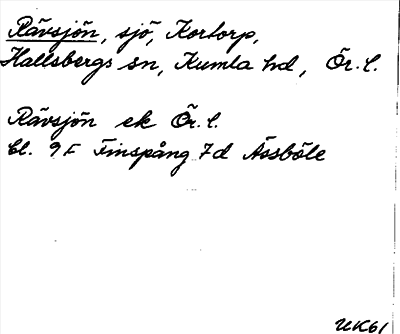 Rävsjön, sjö, Kortorp,
Hallsbergs sn, Kumla hd, Ör. l.
Rävsjön ek Ör. l.
bl. 9F Finspång 7d Åssböle
UK61